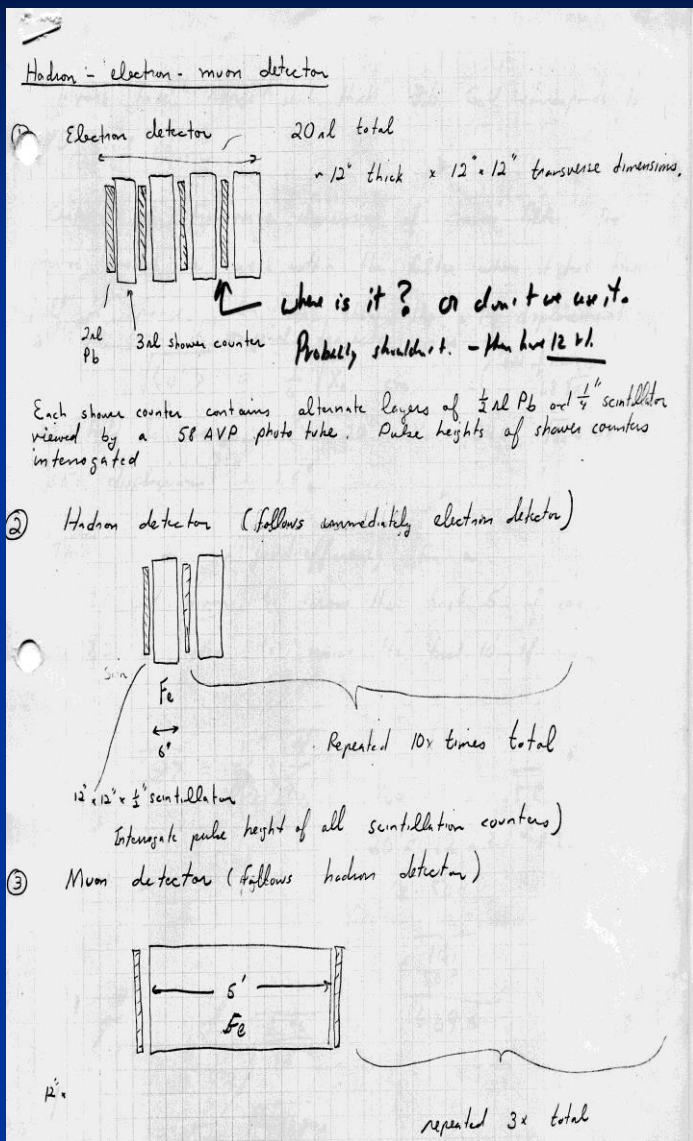 Hadron - electron - muon detector
① Electron detector 20 rl total
~ 12" thick x 12" x 12" transverse dimensions.
where is it? or don't we use it.
2rl Pb
3rl shower counter
Probably shouldn't. - then have 12 rl.
Each shower counter contains alternate layers of ½ rl Pb and ¼" scintillator
viewed by a 58 AVP photo tube. Pulse heights of shower counters
interrogated
② Hadron detector (follows immediately electron detector)
Fe
6"
Repeated 10x times total
12" x 12" x ½" scintillator
Interrogate pulse height of all scintillation counters)
③ Muon detector (follows hadron detector)
5'
Fe
12" x
repeated 3x total